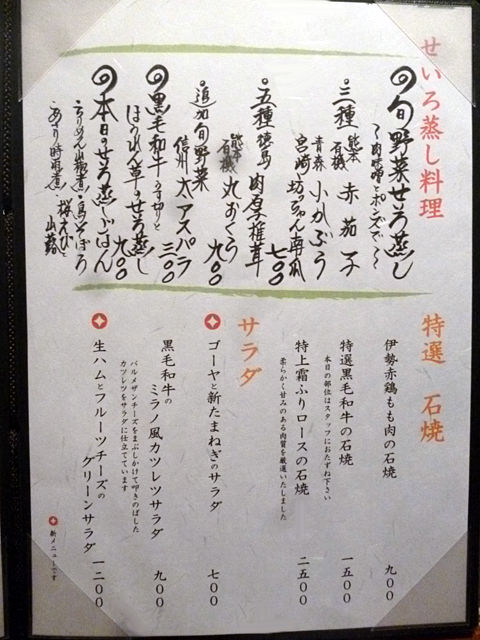 せいろ蒸し料理
旬野菜せいろ蒸し
〜肉味噌とポンズで〜
・三種
熊本有機 赤茄子
青森 小かぶう
宮崎 坊っちゃん南瓜
七〇〇
・五種
徳島 肉厚椎茸
熊本有機 丸おくら
九〇〇
・追加旬野菜
信州 大アスパラ
三〇〇
黒毛和牛のうす切りと
ほうれん草のせいろ蒸し
九〇〇
本日のせいろ蒸しごはん
・ちりめん山椒煮 ・鳥そぼろ
・あさり時雨煮 ・桜えびと山菜
特選 石焼
伊勢赤鶏もも肉の石焼
九〇〇
特選黒毛和牛の石焼
本日の部位はスタッフにおたずね下さい
一五〇〇
特上霜ふりロースの石焼
柔らかく甘みのある肉質を厳選いたしました
二五〇〇
サラダ
ゴーヤと新たまねぎのサラダ
七〇〇
黒毛和牛の
ミラノ風カツレツサラダ
パルメザンチーズをまぶしかけて叩きのばした
カツレツをサラダに仕立てています
九〇〇
生ハムとフルーツチーズの
グリーンサラダ
一二〇〇
新メニューです